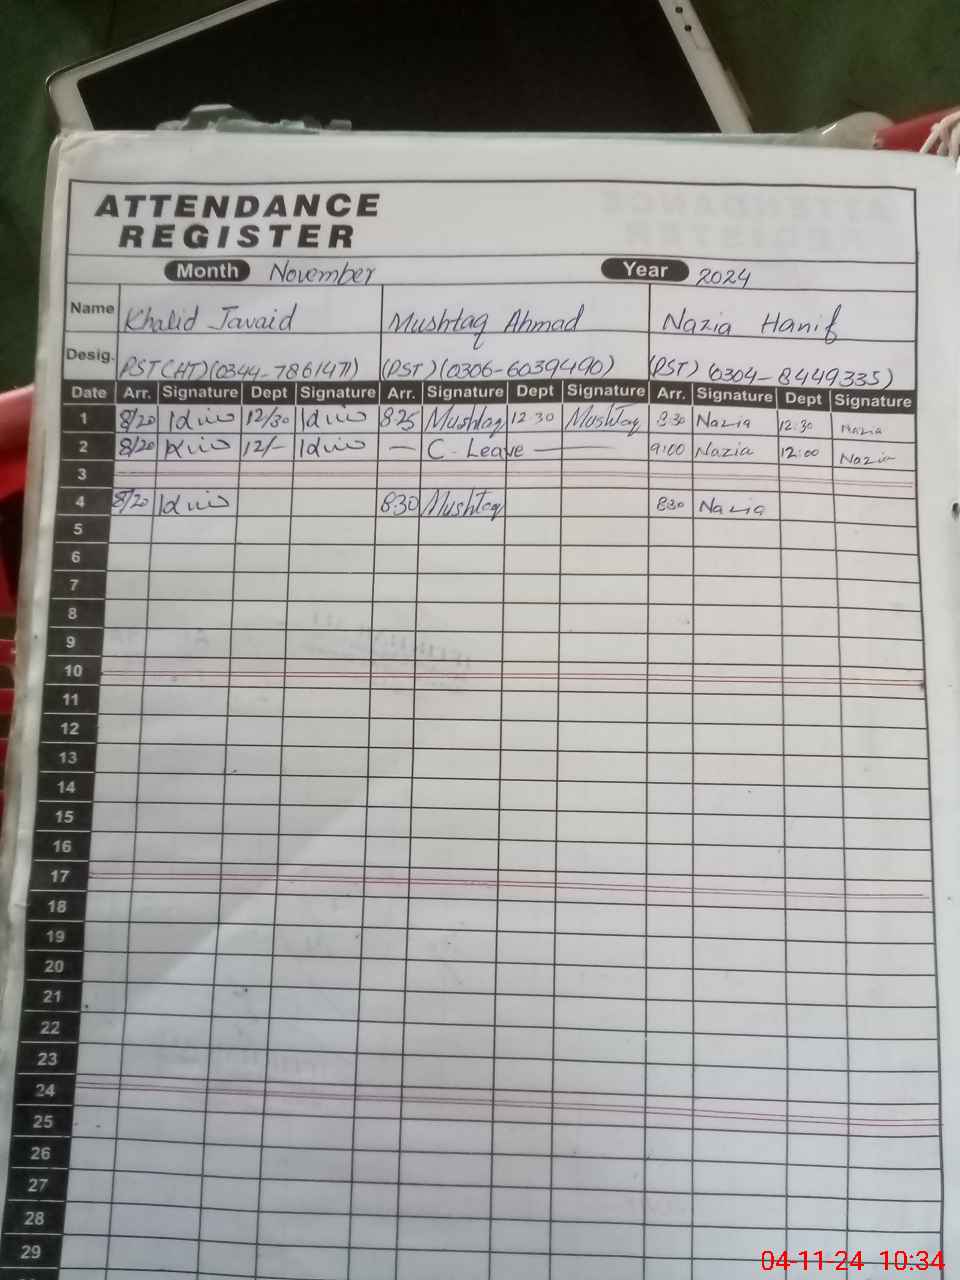 ATTENDANCE
REGISTER
Month November Year 2024
Name Khalid Javaid Mushtaq Ahmad Nazia Hanif
Desig. PST(HT)(0344-7861471) (PST)(0306-6039490) (PST) (0304-8449335)
Date Arr. Signature Dept Signature Arr. Signature Dept Signature Arr. Signature Dept Signature
1 8/20 12/30 8:25 Mushtaq 12:30 Mushtaq 8:30 Nazia 12:30 Nazia
2 8/20 12/- — C. Leave — 9:00 Nazia 12:00 Nazia
3
4 8/20 8:30 Mushtaq 8:30 Nazia
5
6
7
8
9
10
11
12
13
14
15
16
17
18
19
20
21
22
23
24
25
26
27
28
29
04-11-24 10:34